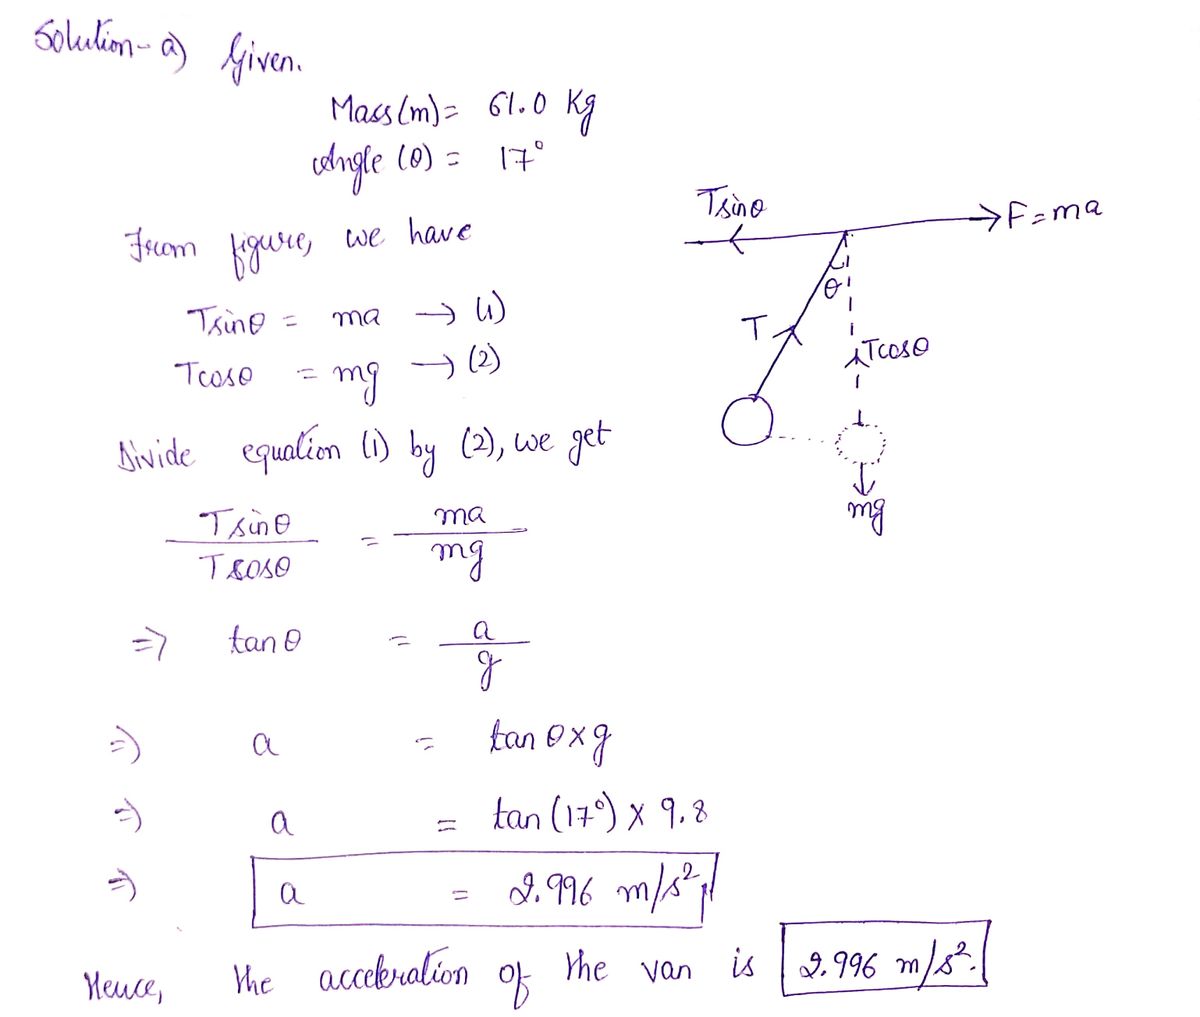 Solution- a) Given.
Mass(m)= 61.0 Kg
Angle (θ) = 17°
From figure, we have
Tsinθ = ma → (1)
Tcosθ = mg → (2)
Divide equation (1) by (2), we get
Tsinθ / Tcosθ = ma / mg
=> tanθ = a / g
=> a = tanθ×g
=> a = tan(17°) × 9.8
=> a = 2.996 m/s²
Hence, the acceleration of the van is 2.996 m/s².
Tsinθ
F=ma
θ
T
Tcosθ
mg